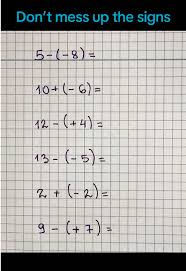 Don't mess up the signs
5-(-8)=
10+(-6)=
12-(+4)=
13-(-5)=
2+(-2)=
9-(+7)=